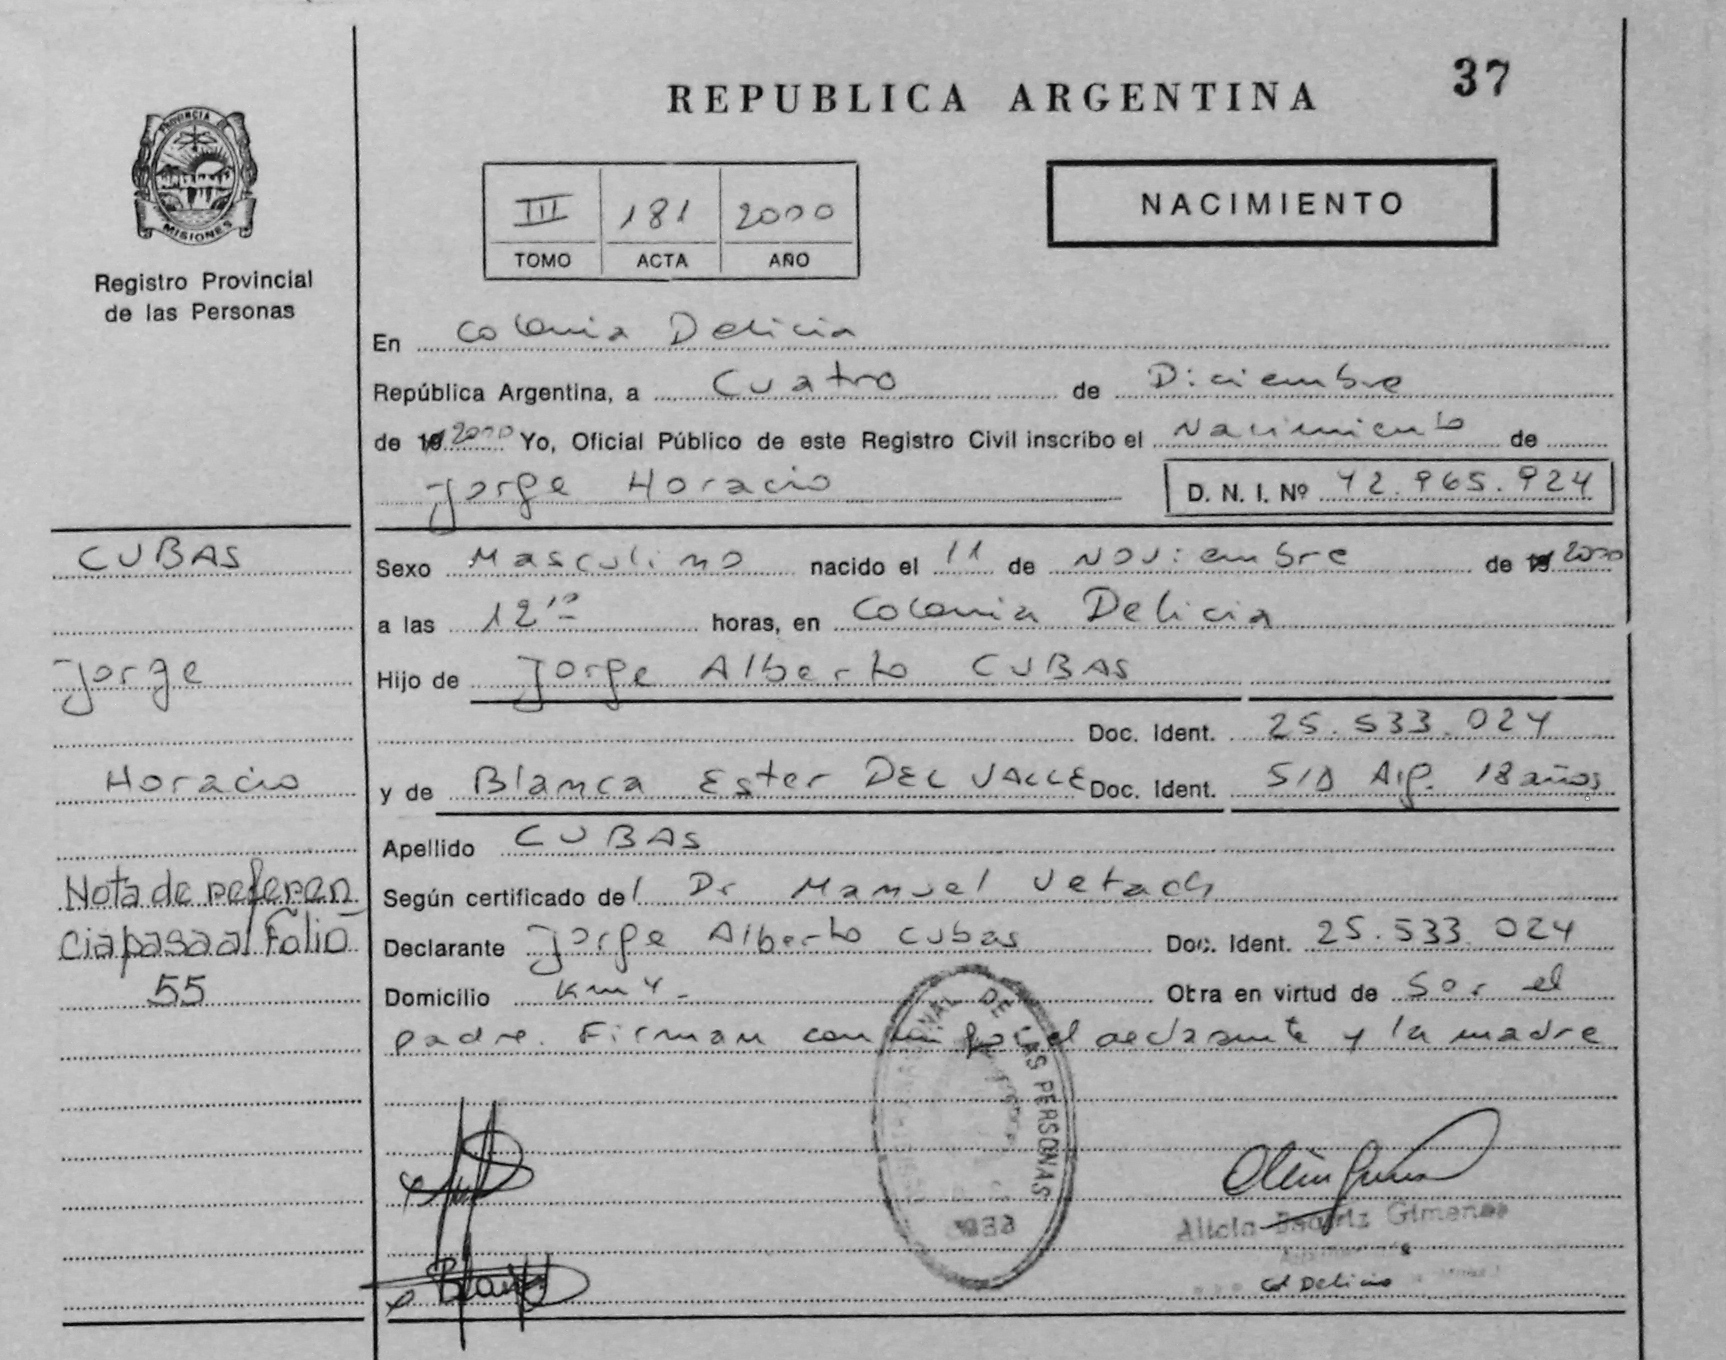 37
REPUBLICA ARGENTINA
PROVINCIA DE
MISIONES
Registro Provincial
de las Personas
III 181 2000
TOMO ACTA AÑO
NACIMIENTO
En Colonia Delicia
República Argentina, a Cuatro de Diciembre
de 19 2000 Yo, Oficial Público de este Registro Civil inscribo el Nacimiento de
Jorge Horacio D. N. I. Nº 42.965.924
CUBAS
Jorge
Horacio
Nota de referen
cia pasa al Folio
55
Sexo Masculino nacido el 11 de Noviembre de 19 2000
a las 12 horas, en Colonia Delicia
Hijo de Jorge Alberto CUBAS
Doc. Ident. 25.533.024
y de Blanca Ester DEL VALLE Doc. Ident. S/D Arg. 18 años
Apellido CUBAS
Según certificado del Dr Manuel
Declarante Jorge Alberto Cubas Doc. Ident. 25.533.024
Domicilio Km 4 - Obra en virtud de Ser el
padre. Firman el declarante y la madre
DE
PERSONAS
Alicia Beatriz Gimenez
Col Delicia
Blanca